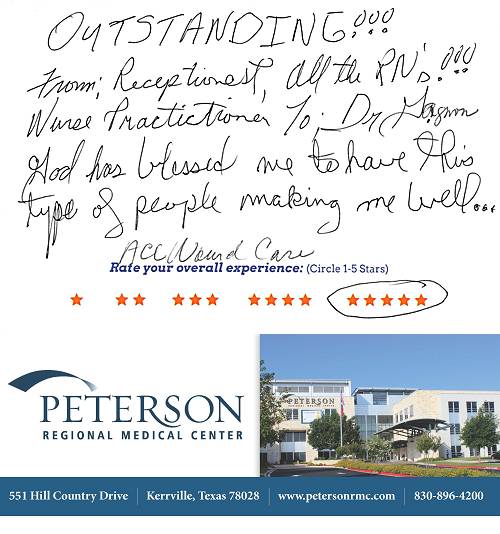 OUTSTANDING!!!
From; Receptionest, All the RN's!!!
Nurse Practictioner To; Dr Gagnon
God has blessed me to have this
type of people making me well...
ACC Wound Care
Rate your overall experience: (Circle 1-5 Stars)
PETERSON
REGIONAL MEDICAL CENTER
PETERSON
551 Hill Country Drive | Kerrville, Texas 78028 | www.petersonrmc.com | 830-896-4200